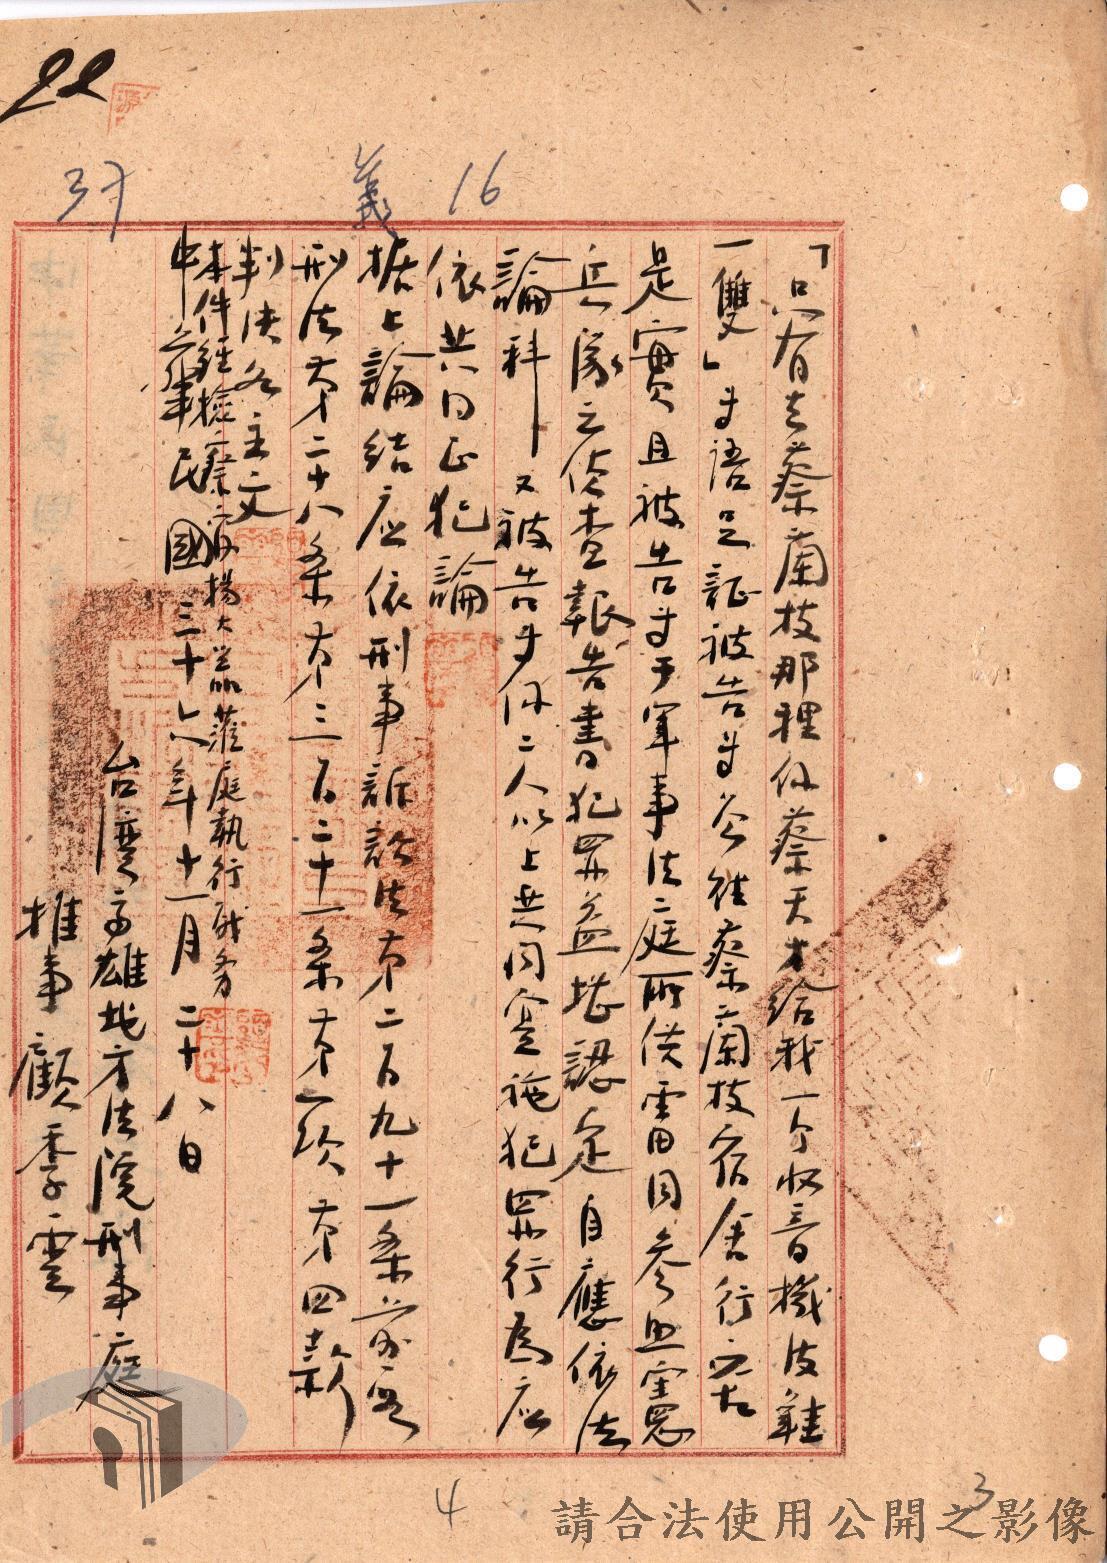 22
37
義
16
「只有去蔡蘭枝那裡伙蔡天才給我一个收音機皮鞋
一雙」等語足証被告等公往蔡蘭枝宿舍行
是實且被告等于軍事法庭所供雷同參照憲
兵隊之偵查報告書犯罪益堪認定自應依法
論科 又被告等 二人以上共同實施犯罪行為應
依共同正犯論
据上論結應依刑事訴訟法第二百九十一条前段
刑法第二十八条第三百二十一条第一項第四款
判決如主文
本件經檢察官楊大 蒞庭執行職務
中華民國三十六年十一月二十八日
台灣高雄地方法院刑事庭
推事顧季雲
4
3
請合法使用公開之影像